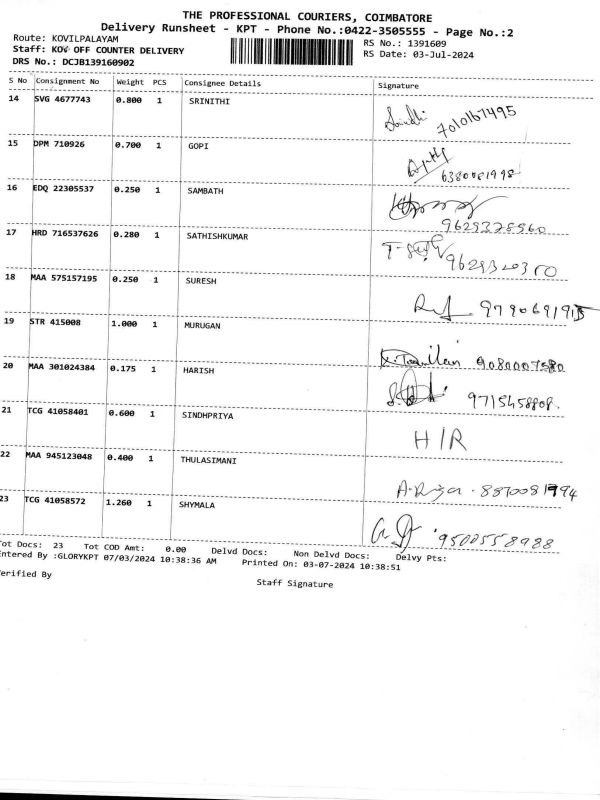 THE PROFESSIONAL COURIERS, COIMBATORE
Delivery Runsheet - KPT - Phone No.:0422-3505555 - Page No.:2
Route: KOVILPALAYAM
RS No.: 1391609
Staff: KOV OFF COUNTER DELIVERY
RS Date: 03-Jul-2024
DRS No.: DCJB139160902
S No Consignment No Weight PCS Consignee Details Signature
14 SVG 4677743 0.800 1 SRINITHI
7010167495
15 DPM 710926 0.700 1 GOPI
6380081998
16 EDQ 22305537 0.250 1 SAMBATH
9629328560
17 HRD 716537626 0.280 1 SATHISHKUMAR
9629320350
18 MAA 575157195 0.250 1 SURESH
9790691915
19 STR 415008 1.000 1 MURUGAN
9080007580
20 MAA 301024384 0.175 1 HARISH
9715458808.
21 TCG 41058401 0.600 1 SINDHPRIYA
H/R
22 MAA 945123048 0.400 1 THULASIMANI
8870081994
23 TCG 41058572 1.260 1 SHYMALA
9500558988
Tot Docs: 23 Tot COD Amt: 0.00 Delvd Docs: Non Delvd Docs: Delvy Pts:
Entered By :GLORYKPT 07/03/2024 10:38:36 AM Printed On: 03-07-2024 10:38:51
Verified By
Staff Signature